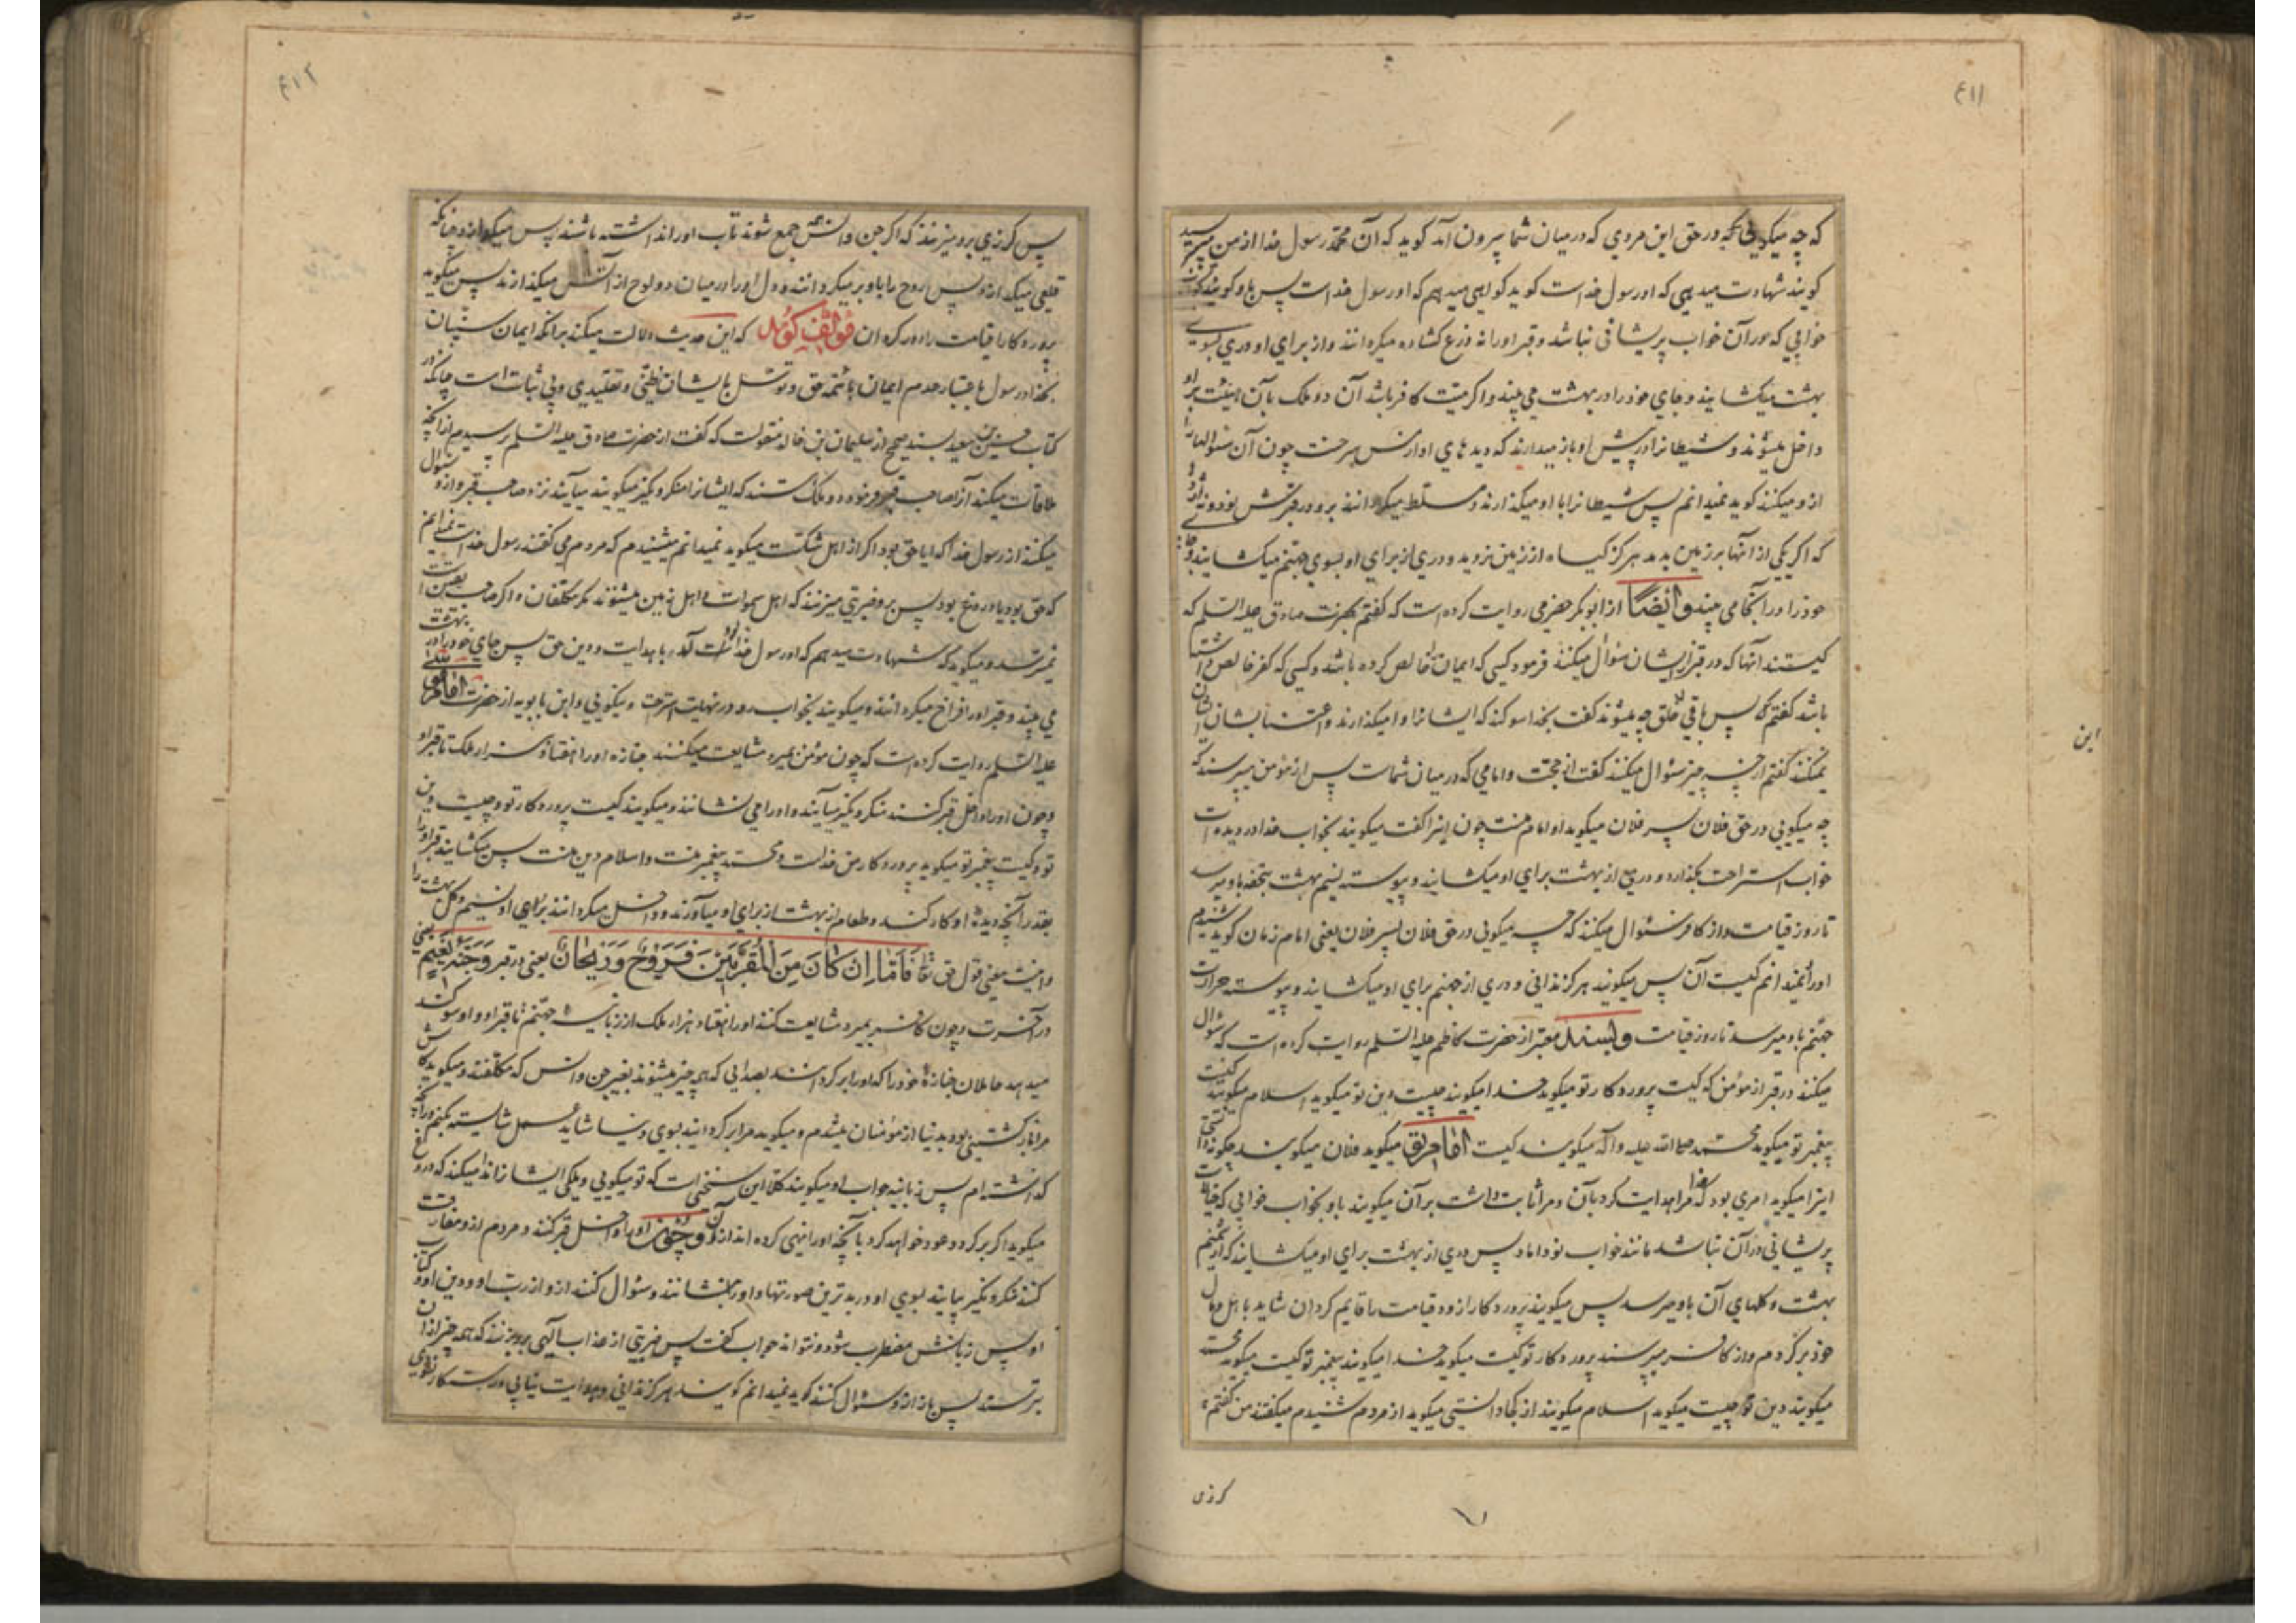 ۴۱۱
که چه میگویی در حق این مردی که در میان شما بیرون آمد گوید که آن محمد رسول خدا از من میپرسید
گویند شهادت میدهی که او رسول خداست گوید گواهی میدهم که او رسول خداست پس باو گویند بکن
خوابی که در آن خواب پریشانی نباشد و قبر او را نه ذرع گشاده میگردانند و از برای او دری بسوی
بهشت میگشایند و جای خود را در بهشت می بیند و اگر میت کافر باشد آن دو ملک بآن هیئت بر او
داخل میشوند و شیطانرا در پیش او باز میدارند که دیدهای او از مس سرخست چون آن سئوالها را
ازو میکنند گوید نمیدانم پس شیطانرا با او میگذارند و مسلط میگردانند برو در قبرش نود و نه اژدها
که اگر یکی از آنها بر زمین بدمد هرگز گیاه از زمین نروید و دری از برای او بسوی جهنم میگشایند و جای
خود را در آنجا می بیند وایضاً از ابوبکر حضرمی روایت کرده است که گفتم بحضرت صادق علیه السلم که
کیستند آنها که در قبر از ایشان سئوال میکنند فرمود کسی که ایمان خالص کرده باشد و کسی که کفر خالص داشته
باشد گفتم که پس باقی خلق چه میشوند گفت بخدا سوگند که ایشانرا وا میگذارند و اعتنا بشان ایشان
نمیکنند گفتم از چه چیز سئوال میکنند گفت از حجت و امامی که در میان شماست پس از مؤمن میپرسند که
چه میگویی در حق فلان پسر فلان میگوید او امام منست چون اینرا گفت میگویند بخواب خدا در دیده ات
خواب استراحت بگذارد و دریچه از بهشت برای او میگشایند و پیوسته نسیم بهشت بتحفه باو میرسد
تا روز قیامت و از کافر سئوال میکنند که چه میگویی در حق فلان پسر فلان یعنی امام زمان گوید شنیدم
او را نمیدانم کیست آن پس میگویند هرگز ندانی و دری از جهنم برای او میگشایند و پیوسته حرارت
جهنم باو میرسد تا روز قیامت وبسند معتبر از حضرت کاظم علیه السلم روایت کرده است که سئوال
میکنند در قبر از مؤمن که کیست پروردکار تو میگوید خدا میگویند چیست دین تو میگوید اسلام میگویند کیست
پیغمبر تو میگوید محمد صلی الله علیه و آله میگویند کیست امام تو میگوید فلان میگویند چگونه دانستی
اینرا میگوید امری بود که خدا مرا هدایت کرد بآن و مرا ثابت داشت بر آن میگویند باو بخواب خوابی که خیالات
پریشانی در آن نباشد مانند خواب نوداماد پس دری از بهشت برای او میگشایند که از نسیم
بهشت و گلهای آن باو میرسد پس میگویند پروردکارا زود قیامت را قایم گردان شاید با اهل و مال
خود برگردم و از کافر میپرسند پروردکار تو کیست میگوید خدا میگویند پیغمبر تو کیست میگوید محمد
میگویند دین تو چیست میگوید اسلام میگویند از کجا دانستی میگوید از مردم شنیدم میگفتند من گفتم
این
گرزی
۴۱۲
پس گرزی برو میزنند که اگر جن و انس همه جمع شوند تاب او را نداشته باشند پس میگدازد چنانکه
قلعی میگدازد پس روح را باو بر میگردانند و دل او را در میان دو لوح از آتش میگذارند پس میگوید
پروردکارا قیامت را دور گردان مؤلف گوید که این حدیث دلالت میکند برانکه ایمان سنیان
بخدا و رسول باعتبار عدم ایمان بائمه حق و توسل بایشان ظنی و تقلیدی و بی ثبات است چنانکه در
کتاب حسین بن سعید بسند صحیح از سلیمان بن خالد منقولست که گفت از حضرت صادق علیه السلم پرسیدم از آنچه
ملاقات میکند آنرا صاحب قبر فرمود دو ملک هستند که ایشانرا منکر و نکیر میگویند میآیند نزد صاحب قبر و ازو سئوال
میکنند از رسول خدا که ایا حق بود اگر از اهل شکست میگوید نمیدانم میشنیدم که مردم می گفتند رسول خداست نمیدانم
که حق بود یا دروغ بود پس برو ضربتی میزنند که اهل سموات و اهل زمین میشنوند مگر مکلفان و اگر صاحب یقین است
نمیترسد و میگوید که شهادت میدهم که او رسول خداست آمد با هدایت و دین حق پس جای خود را در بهشت
می بیند و قبر او را فراخ میگردانند و میگویند بخواب در نهایت استراحت و نیکویی و ابن بابویه از حضرت امام موسی
علیه السلم روایت کرده است که چون مؤمن بمیرد مشایعت میکنند جنازه او را هفتاد هزار ملک تا قبر او
و چون او را داخل قبر کنند منکر و نکیر میآیند و او را می نشانند و میگویند کیست پروردکار تو و چیست دین
تو و کیست پیغمبر تو میگوید پروردکار من خداست و محمد پیغمبر منست و اسلام دین منست پس میگشایند قبر او را
بقدر آنچه دیدهٔ او کار کند و طعام از بهشت از برای او میآورند و داخل میگردانند برای او نسیم و گل بهشت را
و اینست معنی قول حق تعالی فَاَمَّا اِنْ كَانَ مِنَ الْمُقَرَّبِيْنَ فَرَوْحٌ وَرَيْحَانٌ یعنی در قبر وَجَنَّةُ نَعِيْمٍ یعنی
در آخرت و چون کافر بمیرد مشایعت کنند او را هفتاد هزار ملک از زبانیه جهنم تا قبر او و او سوگند
میدهد حاملان جنازهٔ خود را که او را بر گردانند بصدایی که همه چیز میشنوند بغیر جن و انس که مکلفند و میگوید کاش
مرا باز گشتنی بود بدنیا از مؤمنان میشدم و میگوید مرا بر گردانید بسوی دنیا شاید عمل شایسته بکنم در آنچه
گذاشته‌ام پس زبانیه جواب او میگویند کلا این سخنی است که تو میگویی و ملکی ایشانرا ندا میکند که دروغ
میگوید اگر برگردد عود خواهد کرد بآنچه او را نهی کرده اند از آن وچون او را داخل قبر کنند و مردم ازو مفارقت
کنند منکر و نکیر بیایند بسوی او در بدترین صورتها و او را بنشانند و سئوال کنند ازو از رب او و دین او و کتاب
او پس زبانش مضطرب شود و نتواند جواب گفت پس ضربتی از عذاب الهی برو بزنند که همه چیز از آن
بترسند پس باز ازو سئوال کنند گوید نمیدانم گویند هرگز ندانی و هدایت نیابی و رستکار نشوی